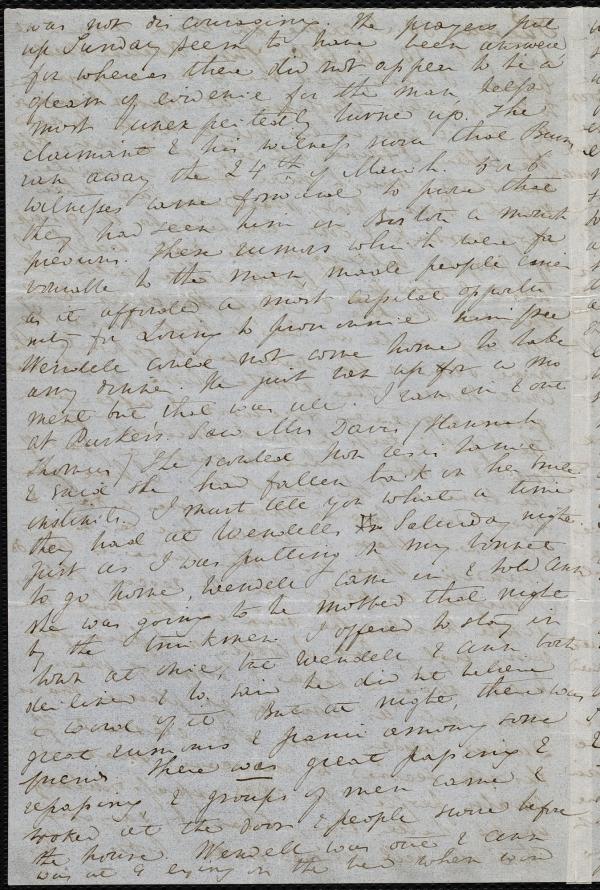 was not discouraging. The prayers put
up Sunday seem to have been answered
for whereas there did not appear to be a
gleam of evidence for the man, helps
most unexpectedly turned up. The
claimant & his witness swore that Burns
ran away the 24th of March. 5 or 6
witnesses came forward to prove that
they had seen him in Boston a month
previous. These rumors which were fa
vorable to the man, made people
as it afforded a most capital opportu
nity for Loring to pronounce him free
Wendell could not come home to take
any dinner. He just ran up for a mo
ment but that was all. I ran in & out
at Parker's. Saw Mrs Davis (Hannah
Thomas) She scouted non resistance
& said she had fallen back on her
instincts. I must tell you what a time
they had at Wendell's Saturday night.
Just as I was putting on my bonnet
to go home, Wendell came in & told Ann
she was going to be mobbed that night
by the truckmen. I offered to stay in
town at once, but Wendell & Ann both
declined & W. said he did not believe
a word of it. But at night, there was
great rumors & panic among some
friends. There was great passing &
repassing & groups of men came &
looked at the door & people swore before
the house. Wendell was out & Ann
was at 9 in the bed when